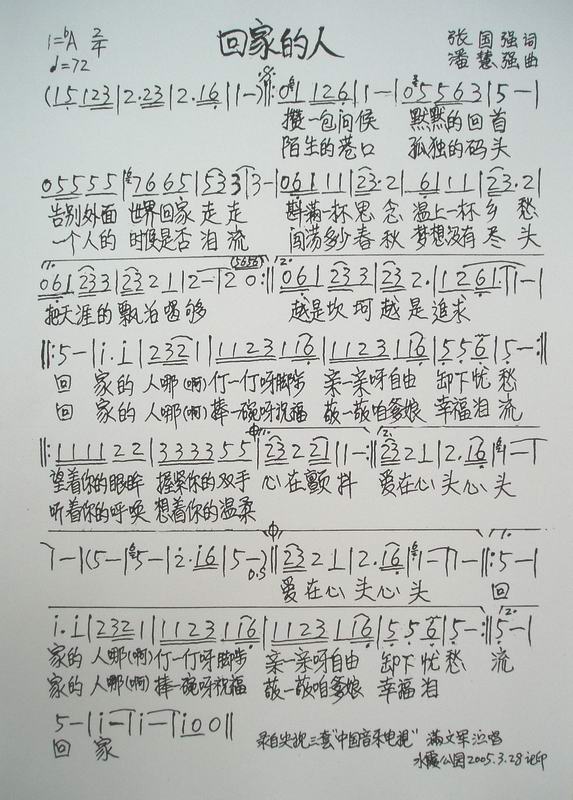 1=♭A 2/4 回家的人 张国强词
♩=72 潘慧强曲
(15 123|2·23|2·16|1-)‖:01 126|1-|05563|5-|
攒一包问候 默默的回首
陌生的巷口 孤独的码头
05555|7665|533|3-|06111|23·2|6111|23·2|
告别外面 世界回家走走 斟满一杯思念 温上一杯乡愁
一个人的时候是否泪流 闯荡多少春秋 梦想没有尽头
1. 061 233|2321|2-|20(5656):‖2. 061 233|232·|1261|1-|
把天涯的飘泊喝够 越是坎坷越是追求
‖:5-|i·i|2321|1123 116|1123 116|556|5-:‖
回 家的人哪(啊)仃一仃呀脚步 亲一亲呀自由 卸下忧愁
回 家的人哪(啊)捧一碗呀祝福 敬一敬咱爹娘 幸福泪流
‖:111122|333355|23221|1-:‖2. 2321|2·16|1-|
望着你的眼眸 握紧你的双手 心在颤抖 爱在心头心头
听着你的呼唤 想着你的温柔
1-|(5-|5-|2·i6|5-)|2321|2·16|1-|1-‖:5-|
D.S
爱在心头心头 回
i·i|2321|1123 116|1123 116|556|5-:‖5-|
家的人哪(啊)仃一仃呀脚步 亲一亲呀自由 卸下忧愁 流
家的人哪(啊)捧一碗呀祝福 敬一敬咱爹娘 幸福泪
5-|i-|i-|i00‖
回 家 录自央视三套"中国音乐电视" 满文军演唱
水霞公园2005.3.28记印